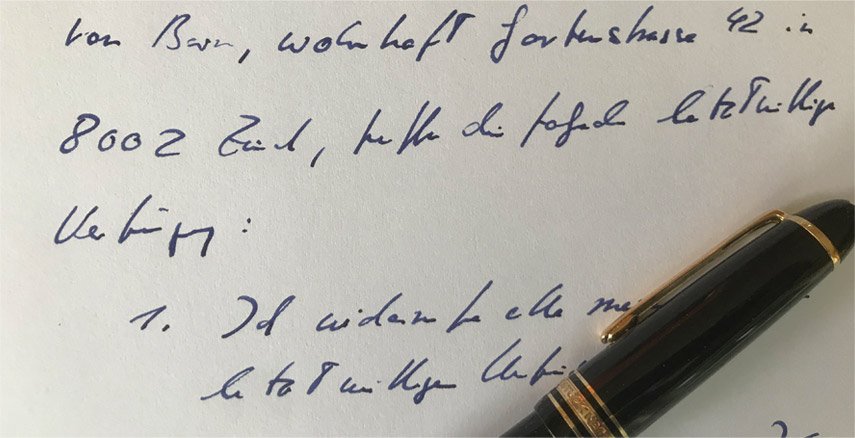 von Bern, wohnhaft Gartenstrasse 42 in
8002 Zürich, treffe die folgende letztwillige
Verfügung:
1. Ich widerrufe alle
letztwilligen